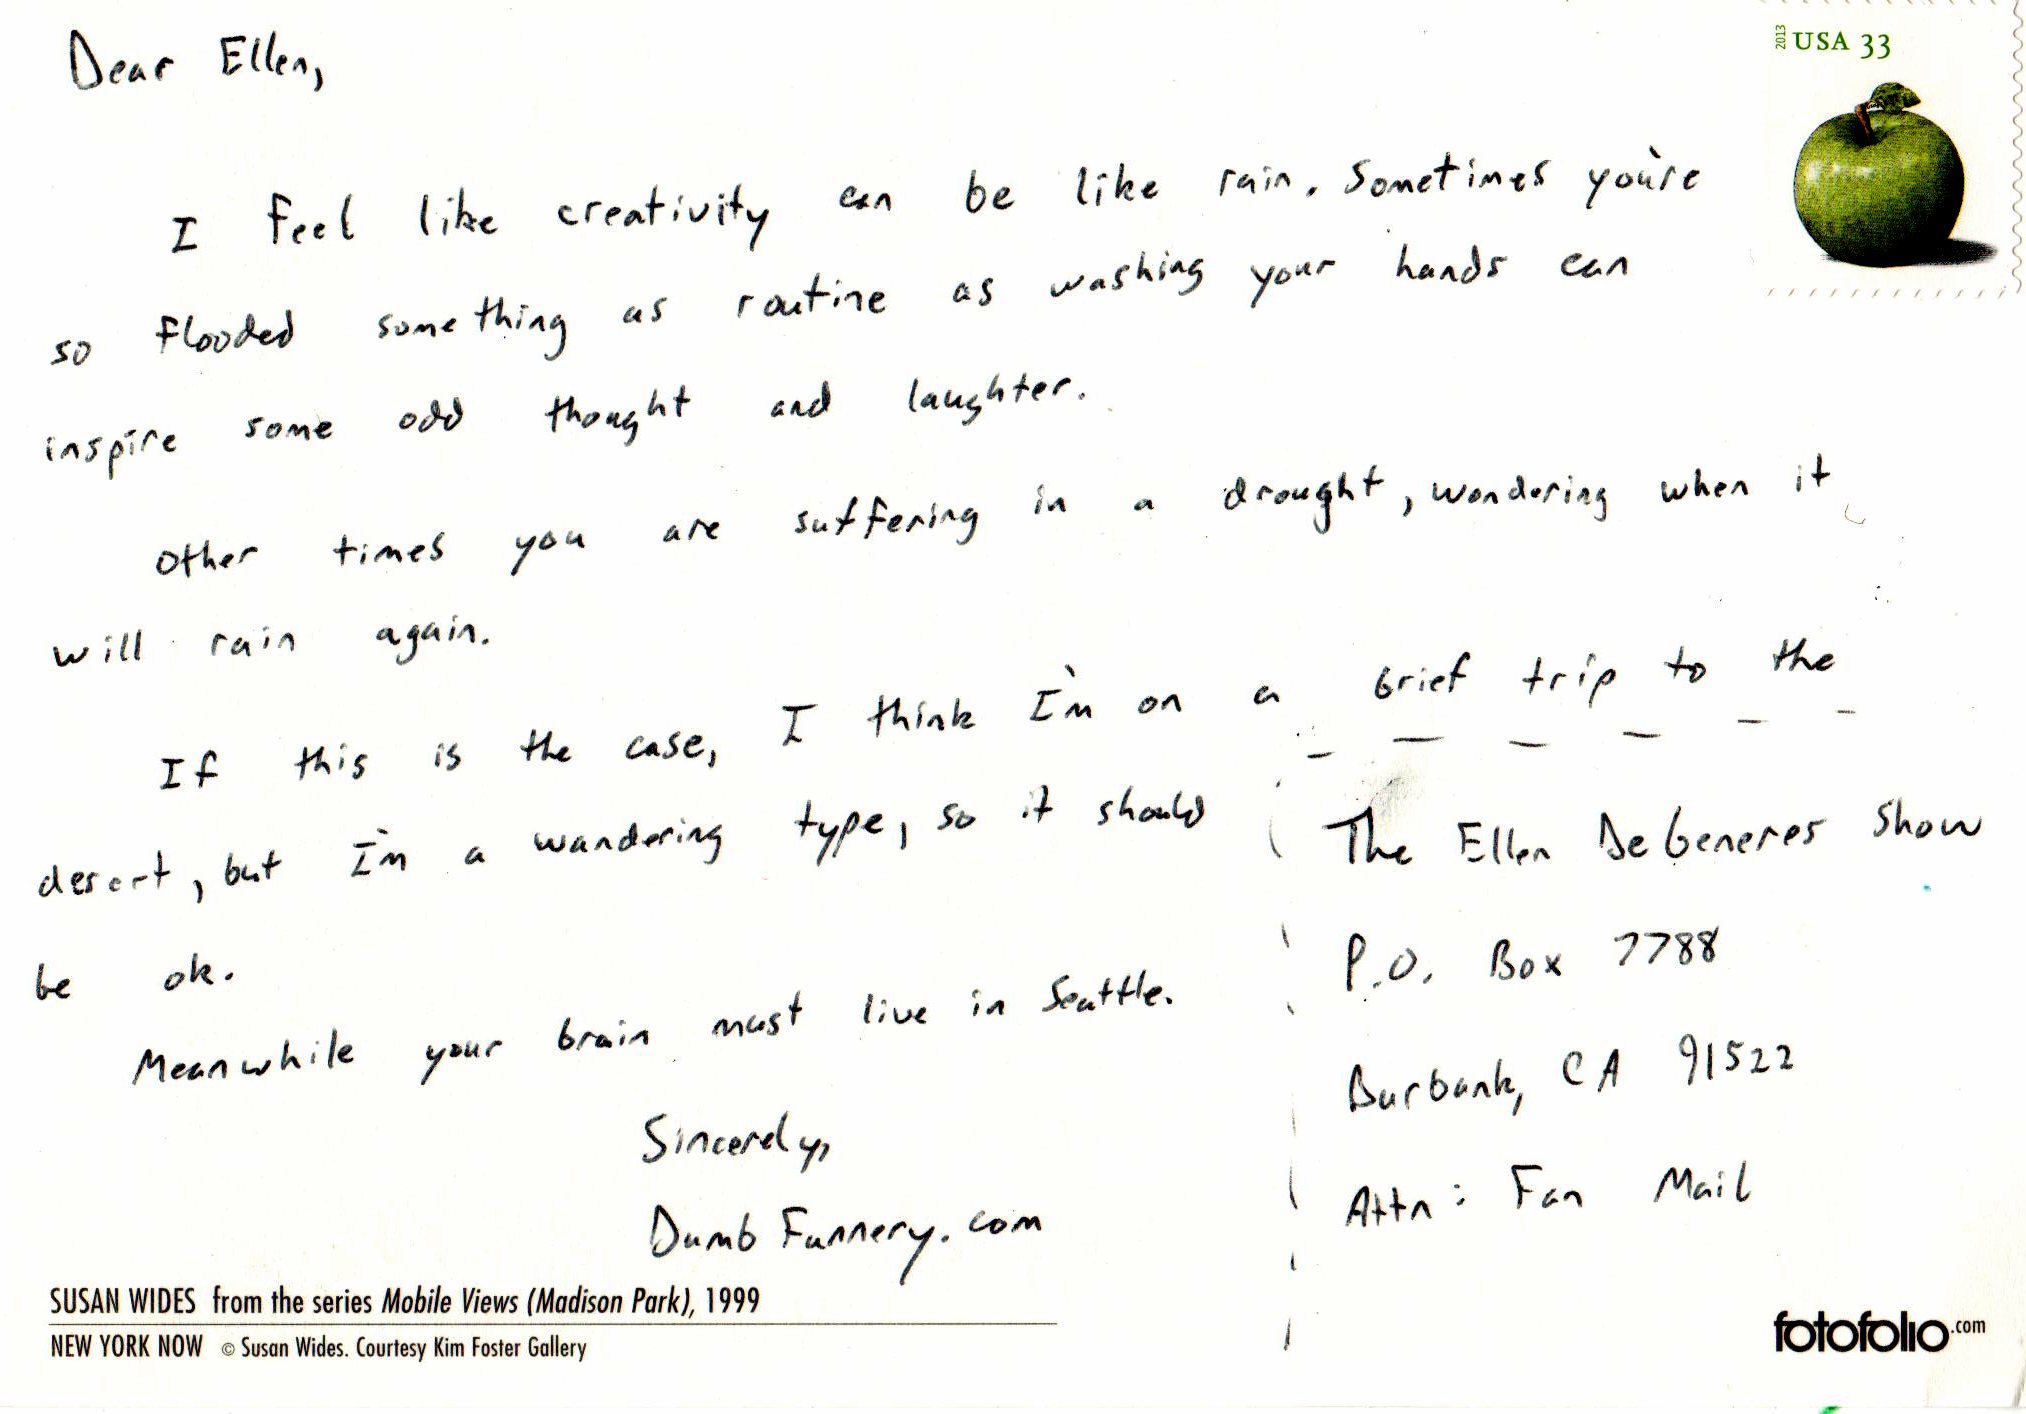 Dear Ellen,
2013 USA 33
I feel like creativity can be like rain. Sometimes you're
so flooded something as routine as washing your hands can
inspire some odd thought and laughter.
Other times you are suffering in a drought, wondering when it
will rain again.
If this is the case, I think I'm on a brief trip to the
desert, but I'm a wandering type, so it should
be ok.
Meanwhile your brain must live in Seattle.
Sincerely,
Dumb Funnery.com
The Ellen DeGeneres Show
P.O. Box 7788
Burbank, CA 91522
Attn: Fan Mail
SUSAN WIDES from the series Mobile Views (Madison Park), 1999
NEW YORK NOW © Susan Wides. Courtesy Kim Foster Gallery
fotofolio.com